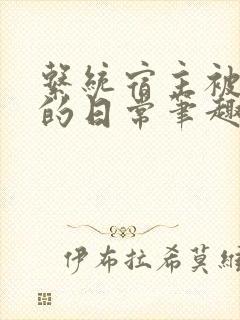 繫統宿主被
的日常笔趣
伊布拉希莫維